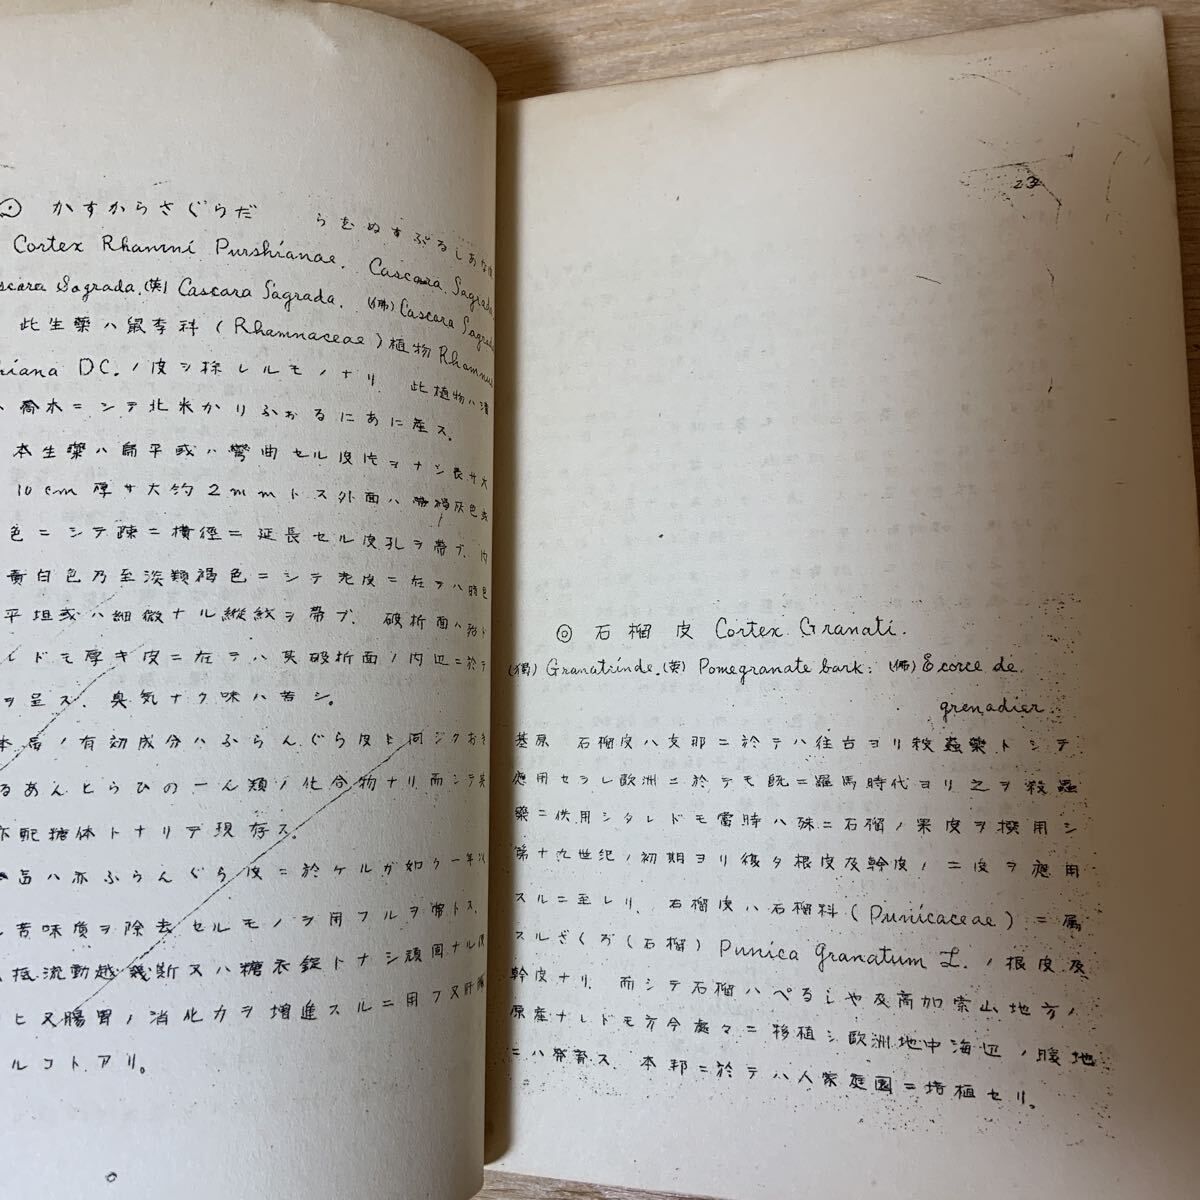 かすからさぐらだ らむぬすぷるしあな
Cortex Rhamni Purshianae. Cascara Sagrada
scara Sagrada. (英) Cascara Sagrada. (佛) Cascara Sagrada
此生薬ハ鼠李科(Rhamnaceae)植物 Rhamnus
hiana DC.ノ皮ヲ採レルモノナリ. 此植物ハ
喬木ニシテ北米かりふおるにあに産ス。
本生薬ハ扁平或ハ彎曲セル皮片ヲナシ長サ大
10cm 厚サ大約2mmトス外面ハ 褐灰色或
色ニシテ疎ニ横徑ニ延長セル皮孔ヲ帶ブ. 内
黄白色乃至淡類褐色ニシテ老皮ニ在テハ暗色
平坦或ハ細微ナル縱紋ヲ帶ブ. 破折面ハ殆ト
レドモ厚キ皮ニ在テハ其破折面ノ内辺ニ於テ
ヲ呈ス. 臭気ナク味ハ苦シ。
本品ノ有効成分ハふらんぐら皮ト同ジクおき
るあんとらひの一ん類ノ化合物ナリ而シテ其
亦配糖体トナリテ現存ス。
品ハ亦ふらんぐら皮ニ於ケルが如ク一年以
苦味質ヲ除去セルモノヲ用フルヲ常トス.
抵流動越幾斯又ハ糖衣錠トナシ頑固ナル便
ヒ又腸胃ノ消化力ヲ増進スルニ用フ又肝臓
ルコトアリ。
23
◎ 石榴皮 Cortex Granati.
(獨) Granatrinde. (英) Pomegranate bark. (佛) Ecorce de
grenadier.
基原 石榴皮ハ支那ニ於テハ往古ヨリ殺蟲藥トシテ
應用セラレ歐洲ニ於テモ既ニ羅馬時代ヨリ之ヲ殺蟲
藥ニ供用シタレドモ當時ハ殊ニ石榴ノ果皮ヲ撰用シ
第十九世紀ノ初期ヨリ復タ根皮及幹皮ノ二皮ヲ應用
スルニ至レリ. 石榴皮ハ石榴科(Punicaceae)ニ属
スルざくろ(石榴) Punica Granatum L.ノ根皮及
幹皮ナリ. 而シテ石榴ハぺるしや及高加索山地方ノ
原産ナレドモ方今處々ニ移植シ歐洲地中海辺ノ暖地
ニハ発育ス. 本邦ニ於テハ人家庭園ニ培植セリ。